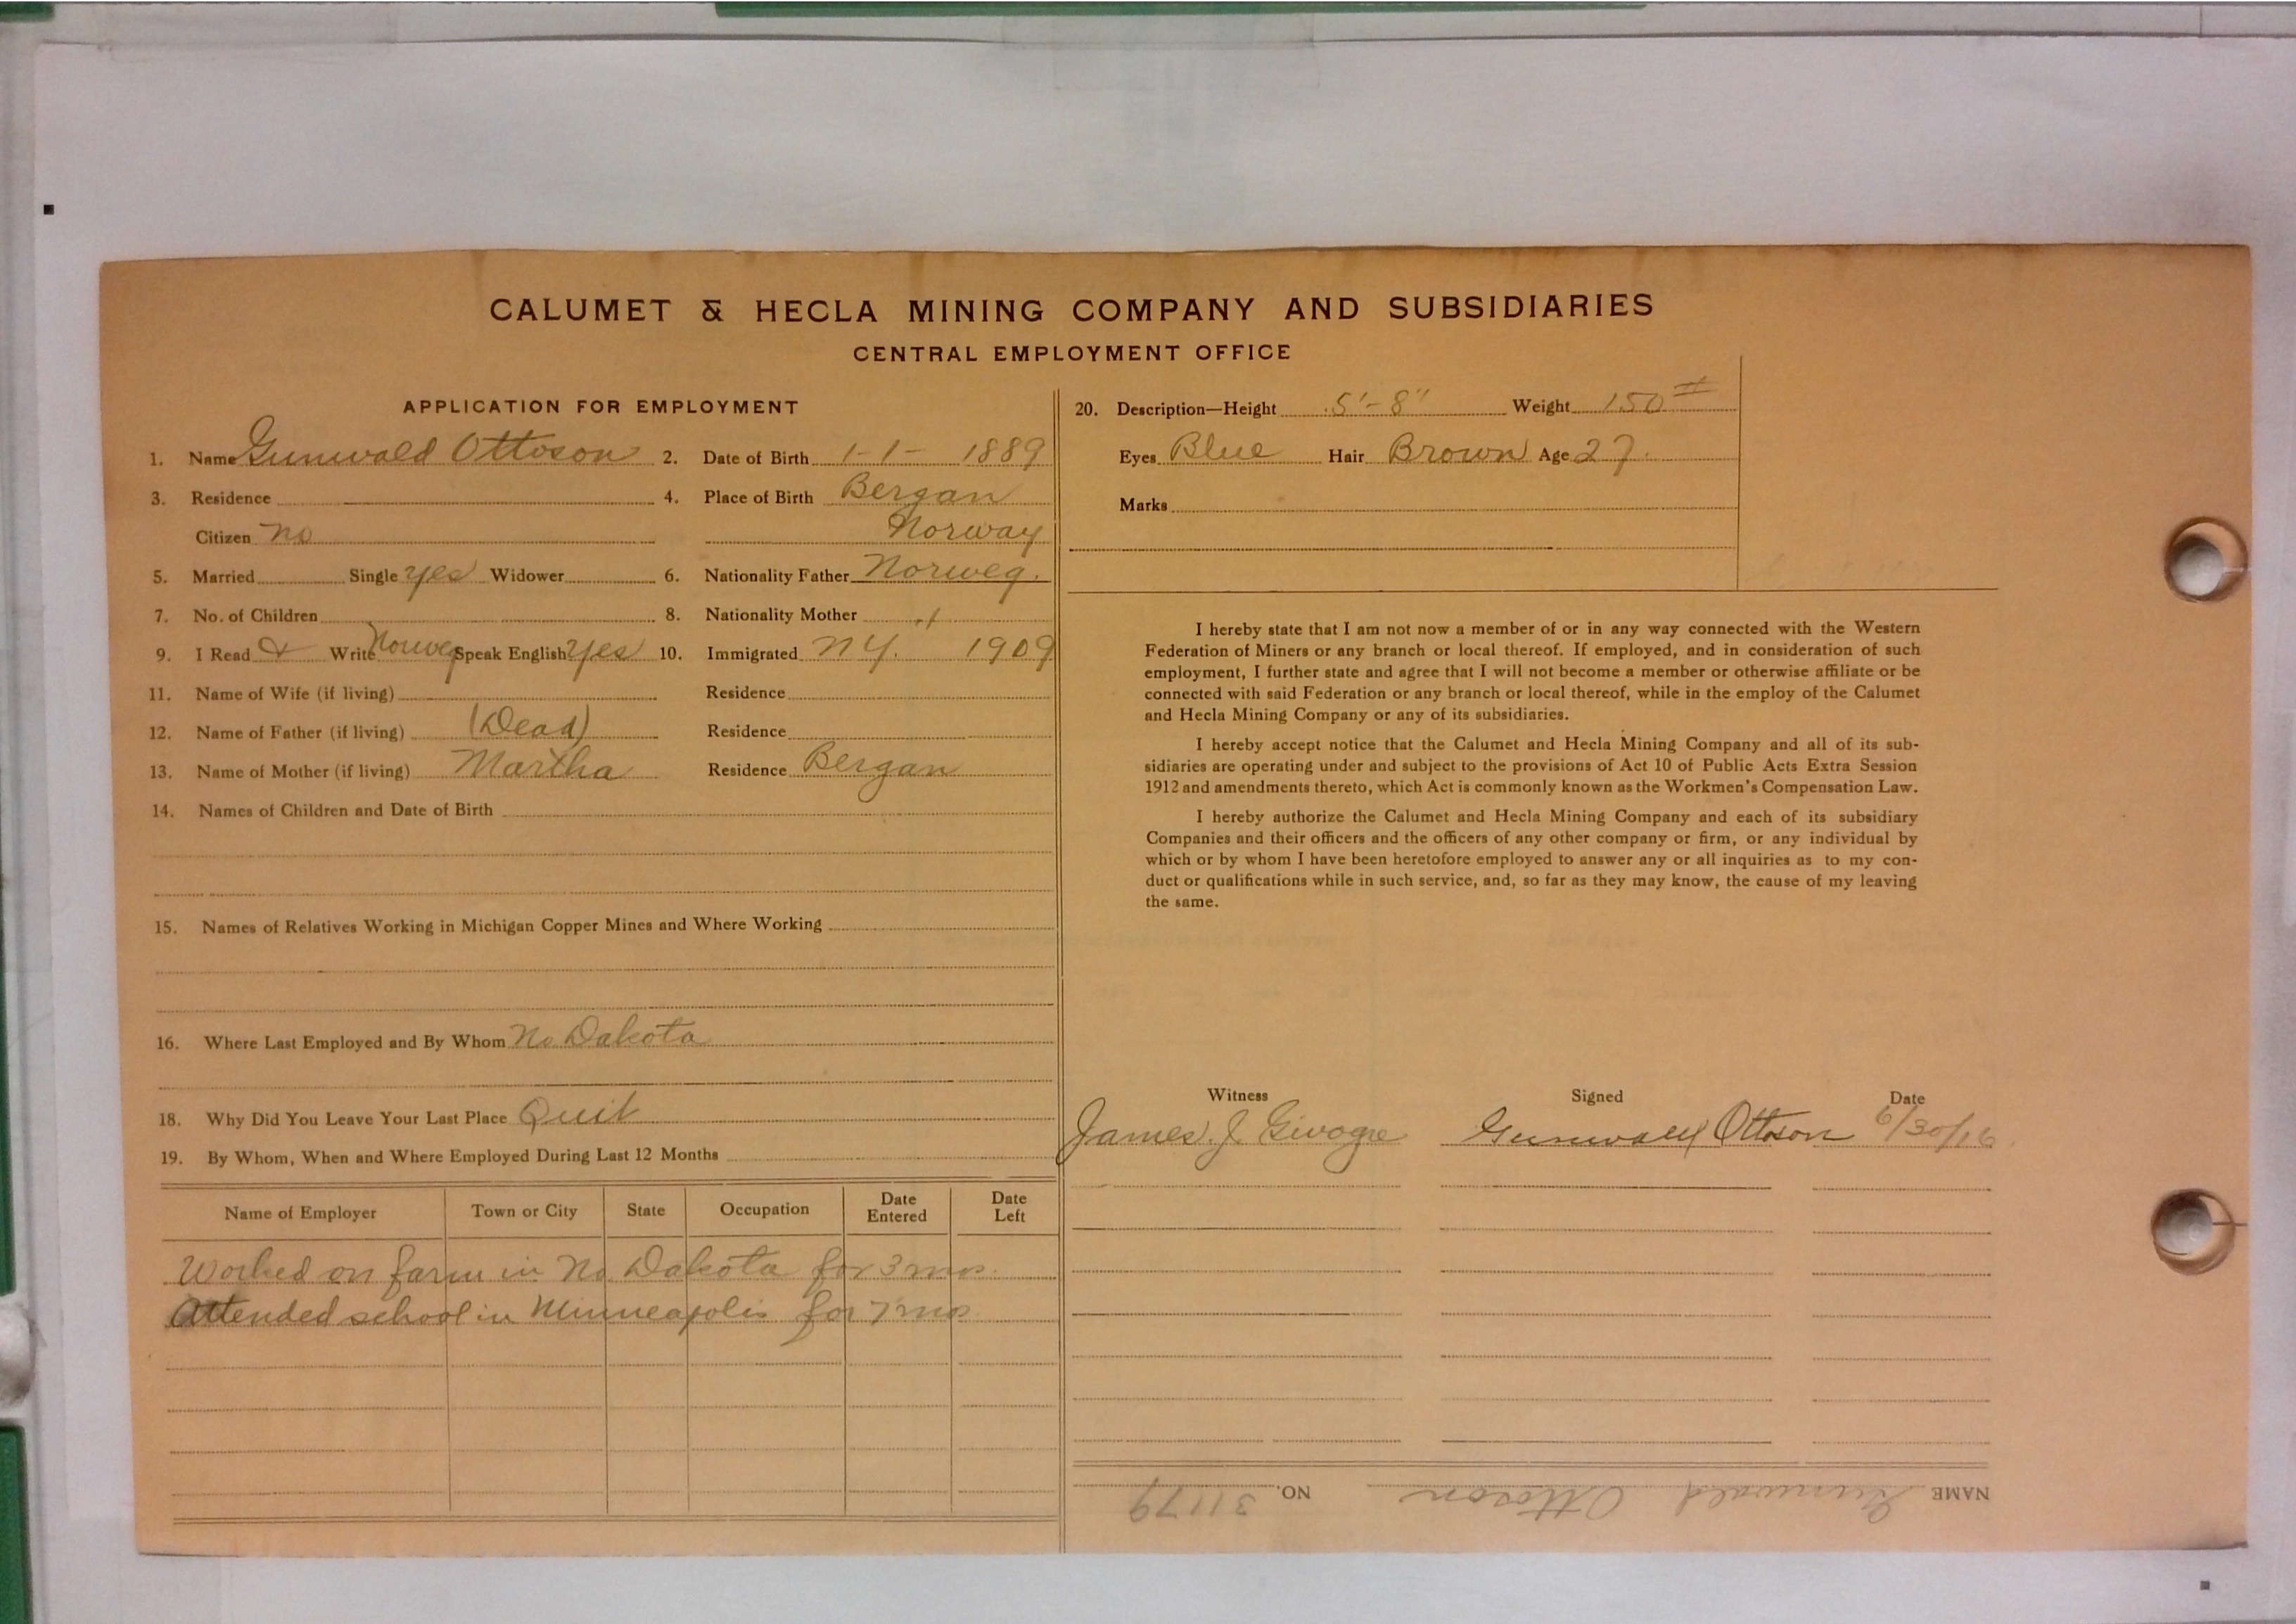 CALUMET & HECLA MINING COMPANY AND SUBSIDIARIES
CENTRAL EMPLOYMENT OFFICE
APPLICATION FOR EMPLOYMENT
1. Name Gunwald Ottoson 2. Date of Birth 1-1- 1889
3. Residence 4. Place of Birth Bergan
Citizen no Norway
5. Married Single yes Widower 6. Nationality Father Norweg.
7. No. of Children 8. Nationality Mother "
9. I Read & Write Norweg Speak English yes 10. Immigrated N.Y. 1909
11. Name of Wife (if living) Residence
12. Name of Father (if living) (Dead) Residence
13. Name of Mother (if living) Martha Residence Bergan
14. Names of Children and Date of Birth
15. Names of Relatives Working in Michigan Copper Mines and Where Working
16. Where Last Employed and By Whom No Dakota
18. Why Did You Leave Your Last Place Quit
19. By Whom, When and Where Employed During Last 12 Months
Name of Employer Town or City State Occupation Date Entered Date Left
Worked on farm in No Dakota for 3 mos.
Attended school in Minneapolis for 7 mos
20. Description—Height 5'-8" Weight 150#
Eyes Blue Hair Brown Age 27.
Marks
I hereby state that I am not now a member of or in any way connected with the Western
Federation of Miners or any branch or local thereof. If employed, and in consideration of such
employment, I further state and agree that I will not become a member or otherwise affiliate or be
connected with said Federation or any branch or local thereof, while in the employ of the Calumet
and Hecla Mining Company or any of its subsidiaries.
I hereby accept notice that the Calumet and Hecla Mining Company and all of its sub-
sidiaries are operating under and subject to the provisions of Act 10 of Public Acts Extra Session
1912 and amendments thereto, which Act is commonly known as the Workmen's Compensation Law.
I hereby authorize the Calumet and Hecla Mining Company and each of its subsidiary
Companies and their officers and the officers of any other company or firm, or any individual by
which or by whom I have been heretofore employed to answer any or all inquiries as to my con-
duct or qualifications while in such service, and, so far as they may know, the cause of my leaving
the same.
Witness Signed Date
James J. Ottoson 6/30/16
NAME Gunwald Ottoson NO. 31179